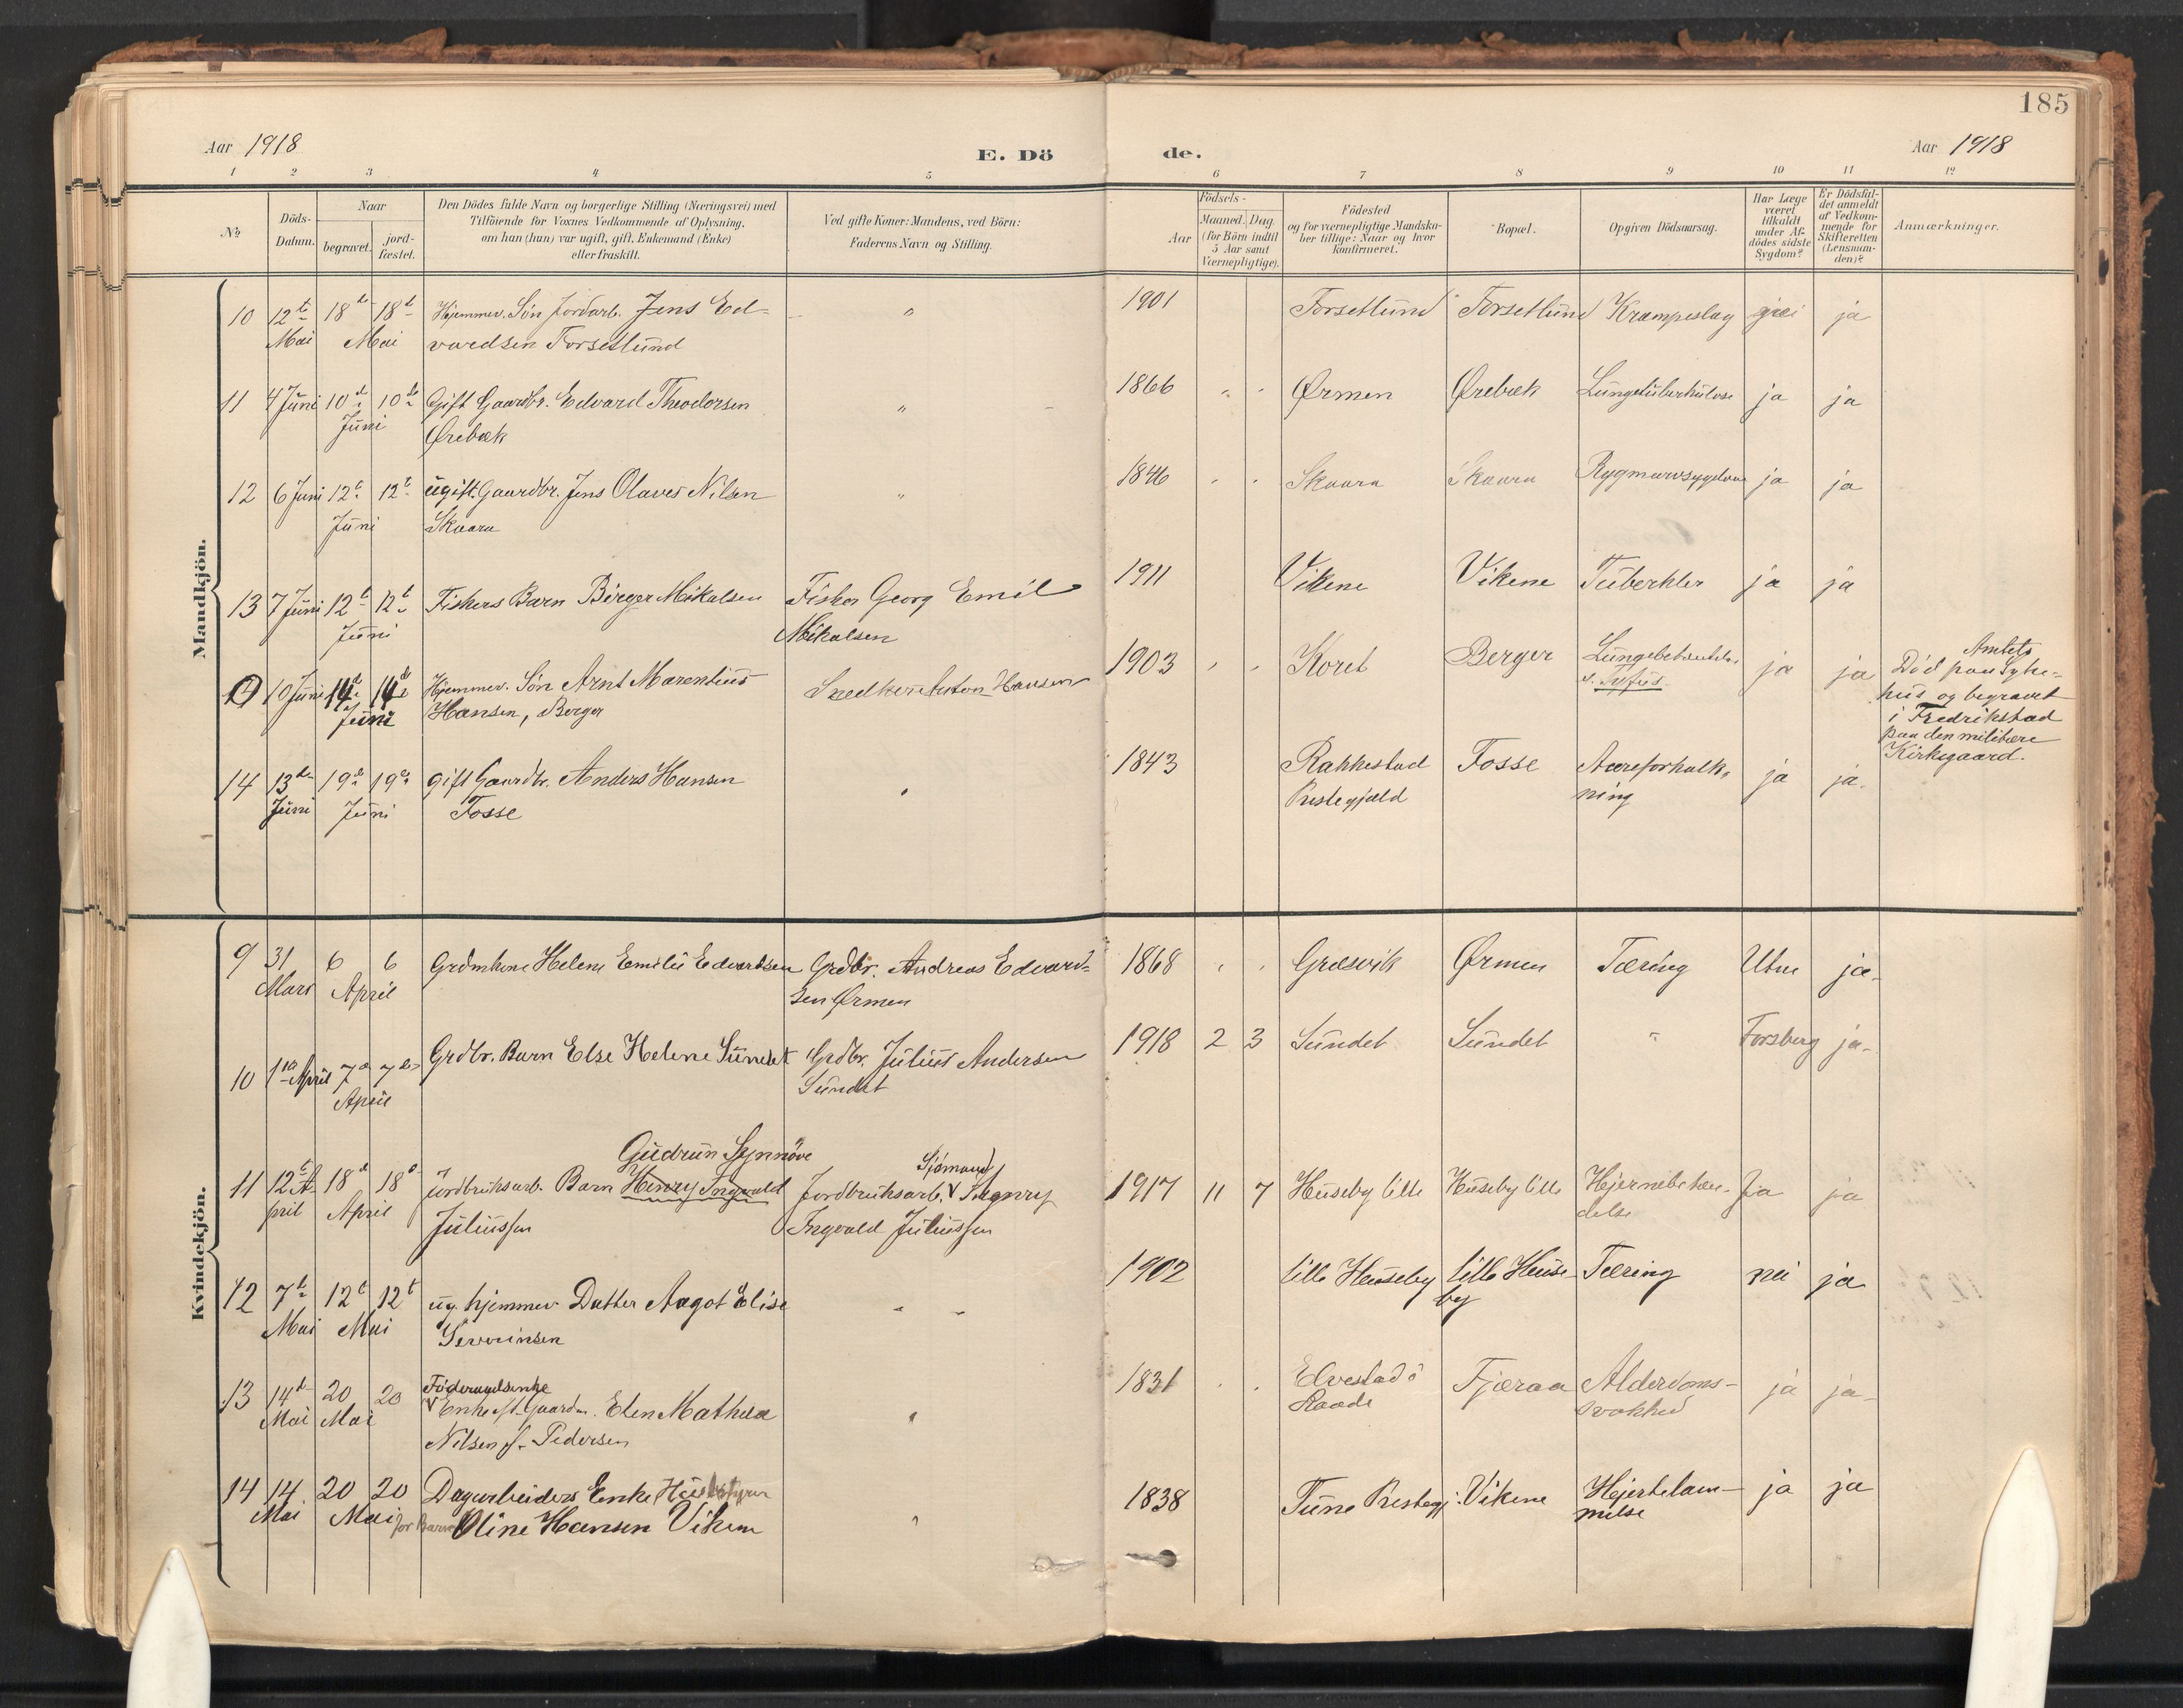 185
Aar 1918
E. Dö
de.
Aar 1918
1 2 3 4 5 6 7 8 9 10 11 12
No
Döds-
Datum.
Naar
begravet.
jord-
fæstet.
Den Dödes fulde Navn og borgerlige Stilling (Næringsvei) med
Tilföiende for Voxnes Vedkommende af Oplysning.
om han (hun) var ugift, gift, Enkemand (Enke)
eller fraskilt.
Ved gifte Koner: Mandens, ved Börn:
Faderens Navn og Stilling.
Födsels-
Aar
Maaned.
Dag.
(for Börn indtil
5 Aar samt
Værnepligtige).
Födested
og for værnepligtige Mandska-
ber tillige: Naar og hvor
konfirmeret.
Bopæl.
Opgiven Dödsaarsag.
Har Læge
været
tilkaldt
under Af-
dödes sidste
Sygdom?
Er Dödsfal-
det anmeldt
af Vedkom-
mende for
Skifteretten
(Lensman-
den)?
Anmærkninger.
Mandkjön.
10 12t 18de 18d Hjemmev. Søn Jordarb. Jens Ed- " 1901 Forsetlund Forsetlund Krampeslag ja
Mai Mai vardsen Forsetlund
11 4 Juni 10d 10de Gift Gaardbr. Edvard Theodorsen " 1866 Ørmen Ørebæk Lungetuberkulose ja ja
Juni Ørebæk
12 6 Juni 12t 12t ugift Gaardbr. Jens Olaves Nilsen " 1846 Skaara Skaara Rygmarvssygdom ja ja
Juni Skaara
13 7 Juni 12t 12t Fiskers Barn Birger Mikalsen Fisker Georg Emil 1911 Vikene Vikene Tuberkler ja ja
Juni Mikalsen
10 Juni 14d 14de Hjemmev. Søn Arnt Marentius Snedker Anton Hansen 1903 Koret Berger ja ja
Juni Hansen, Berger
Amtets
Død paa Syke-
hus og begravet
i Fredrikstad
paa den militære
Kirkegaard.
14 13de 19d 19de gift Gaardbr. Anders Hansen 1843 Rakkestad Fosse Aareforkalk- ja ja.
Juni Juni Fosse Prestegjæld ning
Kvindekjön.
9 31 6 6 Grdmkone Helene Emilie Edvardsen Grdbr. Andreas Edvard- 1868 Græsvik Ørmen Tæring Utne ja
Mars April sen Ørmen
10 1ste April 7d 7de Grdbr. Barn Else Helene Sundet Grdbr. Julius Andersen 1918 2 3 Sundet Sundet " Forsberg ja
April Sundet
Gudrun Synnöve Sjömand
11 12t A- 18d 18d Jordbruksarb. Barn Henry Ingvald Jordbruksarb. 1917 11 7 Huseby lille Huseby lille Hjernebetæn- Ja ja
pril April Juliussen Ingvald Juliussen delse
12 7t 12t 12t ug. hjemmev. Datter Aagot Elise 1902 lille Huseby lille Huse- Tæring nei ja
Mai Mai Severinsen by
Föderaadsenke
13 14d 20 20 Enke eft. Gaardm. Elen Mathea " 1831 Elvestad i Fjæraa Alderdoms- ja ja
Mai Mai Nilsen f. Pedersen Raade svakhed
14 14 20 20 Dagarbeiders Enke 1838 Tune Prestegj. Vikene Hjertelam- ja ja
Mai Mai Oline Hansen Vikene " melse